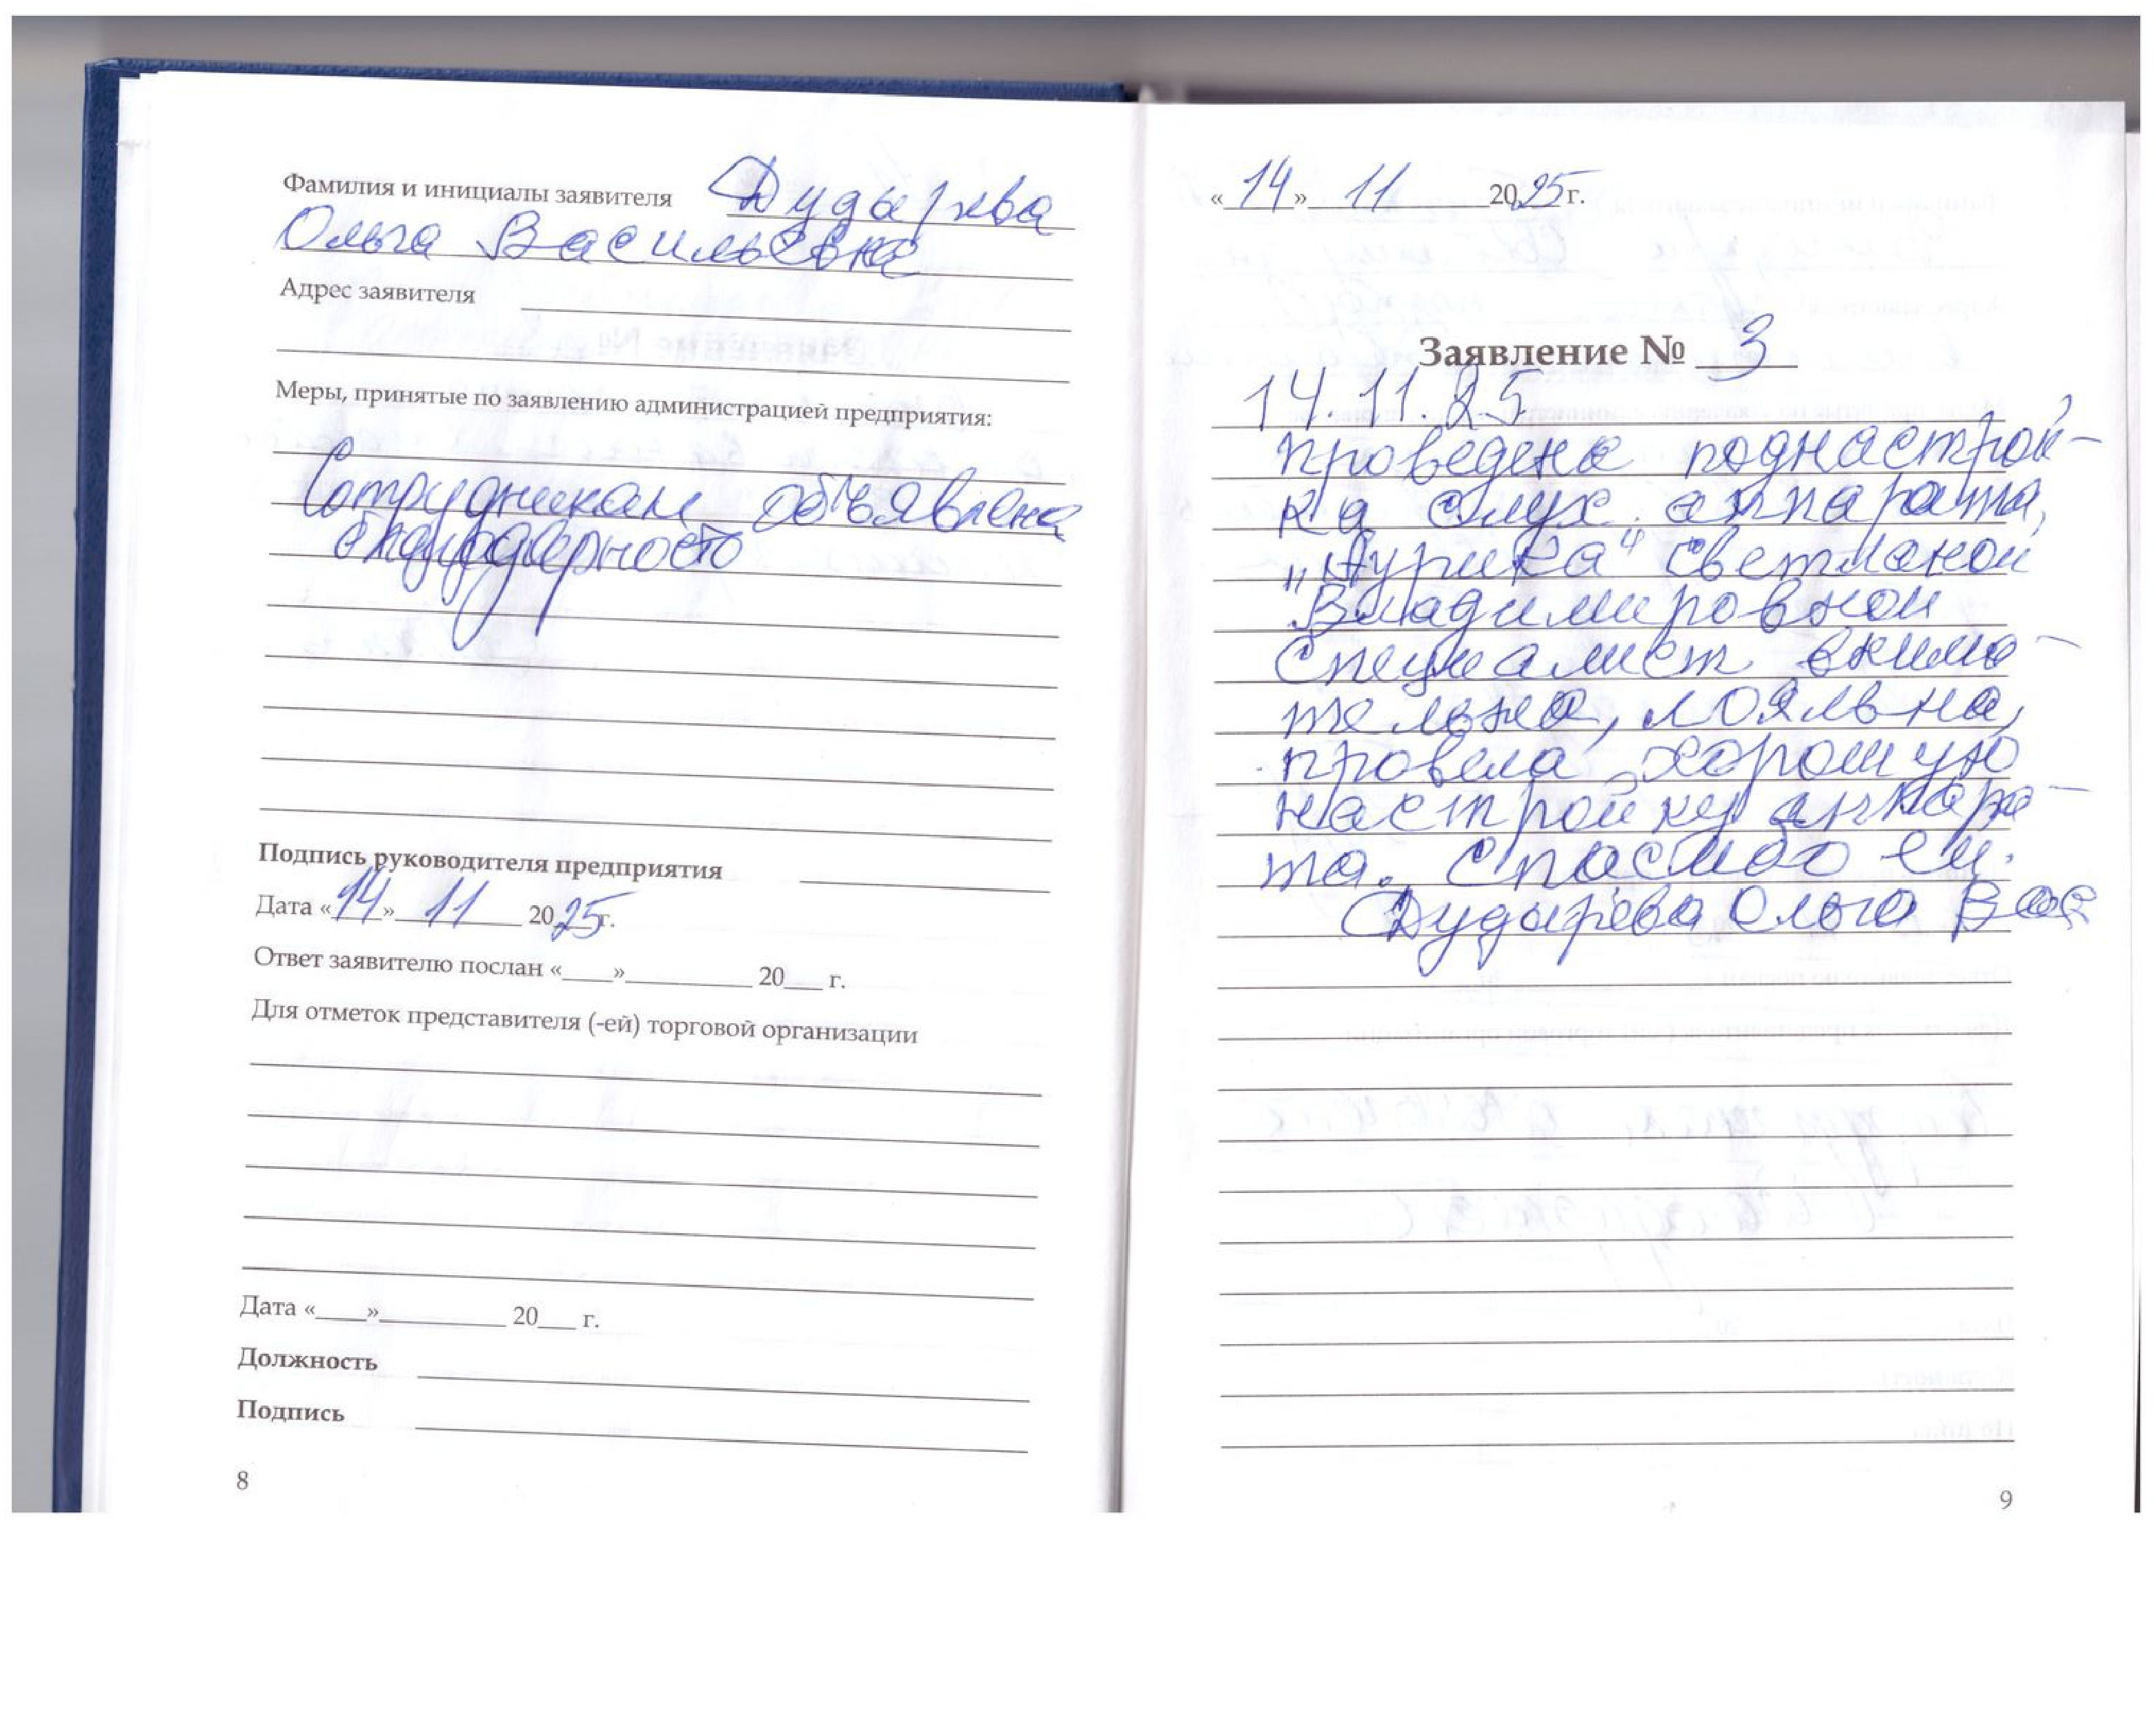 Фамилия и инициалы заявителя Дудырева
Ольга Васильевна
Адрес заявителя
Меры, принятые по заявлению администрацией предприятия:
Сотрудникам объявлена
Подпись руководителя предприятия
Дата «14» 11 2025г.
Ответ заявителю послан «____»__________ 20___ г.
Для отметок представителя (-ей) торговой организации
Дата «____»__________ 20___ г.
Должность
Подпись
8
«14» 11 2025г.
Заявление № 3
14.11.25
проведена поднастрой-
ка слух. аппарата,
"Аурика" Светланой
Владимировной
Специалист внима-
тельна, лояльна,
провела хорошую
настройку аппара-
та. Спасибо ей.
Дудырева Ольга Вас
9